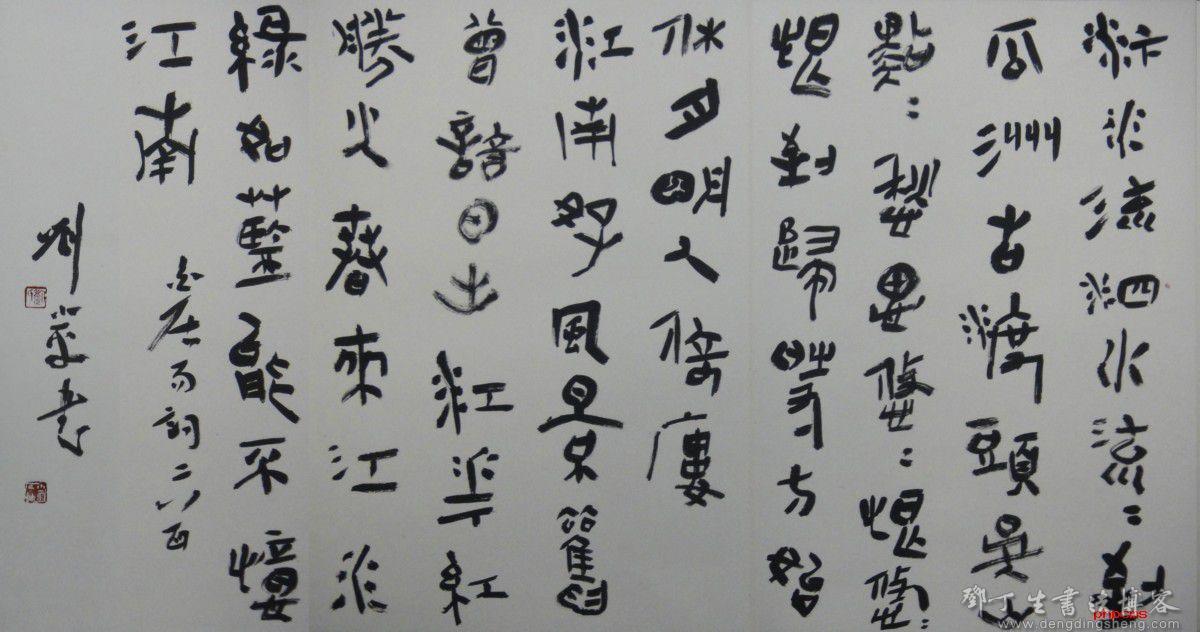 汴水流泗水流〻到
瓜洲古渡頭吳山
點〻愁思悠〻恨悠〻
恨到歸時方始
休月明人倚樓
江南好風景舊
曾諳日出江花紅
勝火春來江水
綠如藍能不憶
江南
白居易詞二首
劉 書
鄧丁生書法博客
www.dengdingsheng.com
phpcms